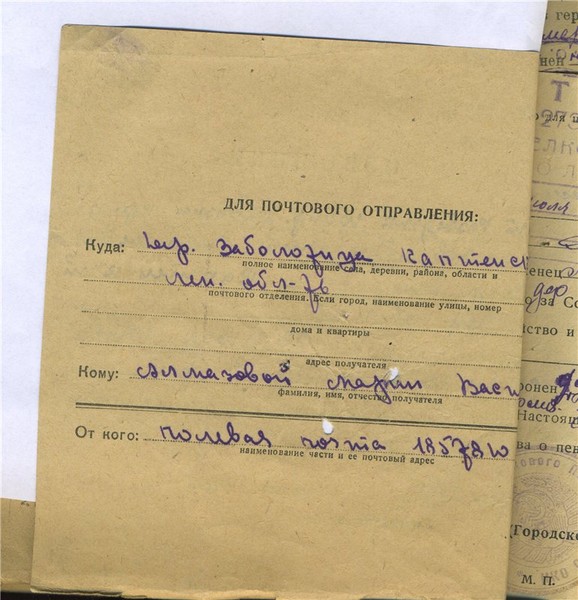 ДЛЯ ПОЧТОВОГО ОТПРАВЛЕНИЯ:
Куда: дер. Заболозица Каптенск
полное наименование села, деревни, района, области и
Лен. обл-ть
почтового отделения. Если город, наименование улицы, номер
дома и квартиры
адрес получателя
Кому: Алмазовой Марии Вас
фамилия, имя, отчество получателя
От кого: полевая почта 18578
наименование части и ее почтовый адрес
гер
нен
Т
273
ЕЛКО
июля
енец
за Со
ство и
ронен
Настоящ
ва о пен
(Городско
М. П.